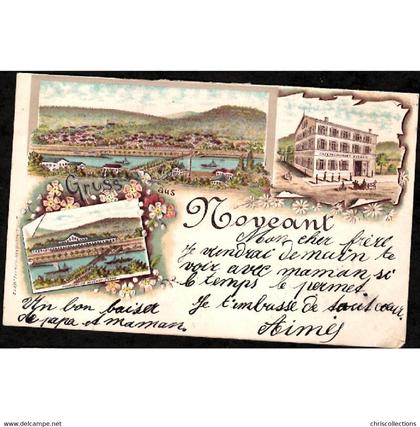 Gruss aus
Noveant
Mon cher frère
Je viendrai demain te
voir avec maman, si
le temps le permet
Un bon baiser
de papa et maman.
Je t'embrasse de tout coeur
Aimes
www.delcampe.net
chriscollections